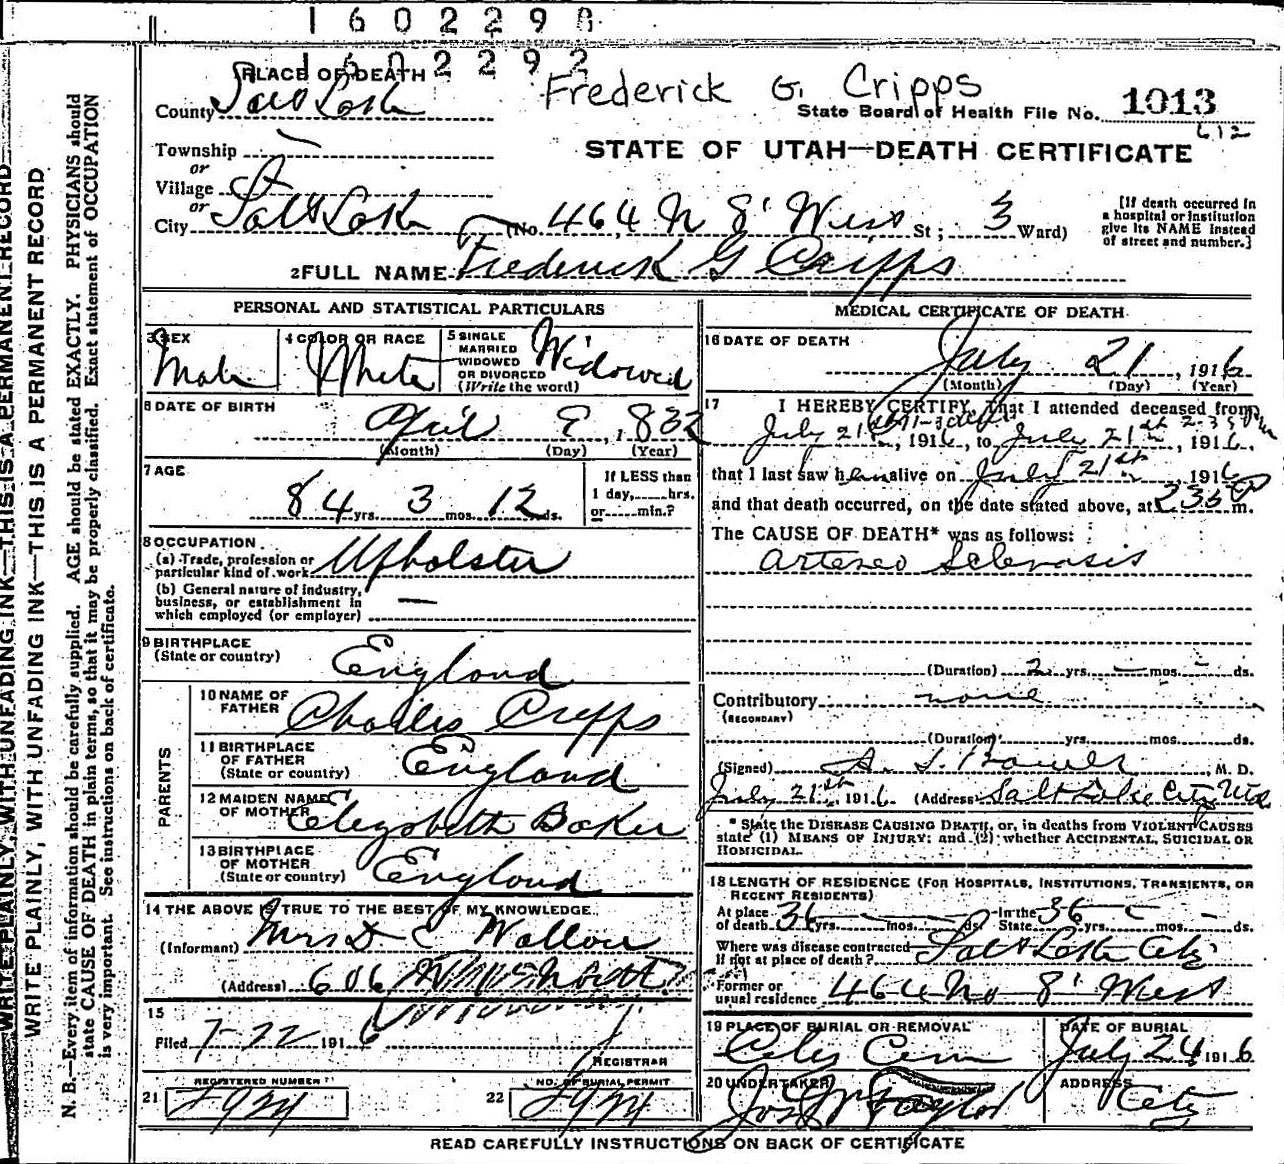 1602298
1602292
PLACE OF DEATH
Frederick G. Cripps
County Salt Lake
State Board of Health File No. 1013
612
Township
or
STATE OF UTAH—DEATH CERTIFICATE
Village
or
City Salt Lake (No. 464 N 8' West St; 3 Ward)
[If death occurred in
a hospital or institution
give its NAME instead
of street and number.]
2 FULL NAME Frederick G Cripps
PERSONAL AND STATISTICAL PARTICULARS
3 SEX
Male
4 COLOR OR RACE
White
5 SINGLE
MARRIED
WIDOWED
OR DIVORCED
(Write the word)
Widowed
6 DATE OF BIRTH
April 9, 1832
(Month) (Day) (Year)
7 AGE
84 yrs. 3 mos. 12 ds.
If LESS than
1 day, hrs.
or min.?
8 OCCUPATION
(a) Trade, profession or
particular kind of work Upholster
(b) General nature of industry,
business, or establishment in
which employed (or employer) —
9 BIRTHPLACE
(State or country) England
PARENTS
10 NAME OF
FATHER Charles Cripps
11 BIRTHPLACE
OF FATHER
(State or country) England
12 MAIDEN NAME
OF MOTHER Elezabeth Baker
13 BIRTHPLACE
OF MOTHER
(State or country) England
14 THE ABOVE IS TRUE TO THE BEST OF MY KNOWLEDGE
(Informant) Mrs D C
(Address) 606
15
Filed 7-22 1916
REGISTRAR
REGISTERED NUMBER
21
NO. OF BURIAL PERMIT
22
MEDICAL CERTIFICATE OF DEATH
16 DATE OF DEATH
July 21, 1916
(Month) (Day) (Year)
17 I HEREBY CERTIFY, that I attended deceased from
July 21st, 1916, to July 21st 2-35 Pm, 1916,
that I last saw him alive on July 21st 1916
and that death occurred, on the date stated above, at 2 35 P m.
The CAUSE OF DEATH* was as follows:
Artereo Sclerosis
(Duration) 2 yrs. — mos. - ds.
Contributory none
(SECONDARY)
(Duration) yrs. mos. ds.
(Signed) A. S. , M. D.
July 21st 1916 (Address) Salt Lake City Utah
* State the DISEASE CAUSING DEATH, or, in deaths from VIOLENT CAUSES
state (1) MEANS OF INJURY; and (2) whether ACCIDENTAL, SUICIDAL OR
HOMICIDAL.
18 LENGTH OF RESIDENCE (FOR HOSPITALS, INSTITUTIONS, TRANSIENTS, OR
RECENT RESIDENTS)
At place
of death 36 yrs. ds.
In the
State 36 yrs. mos. ds.
Where was disease contracted
If not at place of death? Salt Lake City
Former or
usual residence 464 No 8' West
19 PLACE OF BURIAL OR REMOVAL
City Cem
DATE OF BURIAL
July 24 1916
20 UNDERTAKER
Jos Wm Taylor
ADDRESS
City
READ CAREFULLY INSTRUCTIONS ON BACK OF CERTIFICATE
WRITE PLAINLY, WITH UNFADING INK—THIS IS A PERMANENT RECORD
WRITE PLAINLY, WITH UNFADING INK—THIS IS A PERMANENT RECORD
N. B.—Every item of information should be carefully supplied. AGE should be stated EXACTLY. PHYSICIANS should
state CAUSE OF DEATH in plain terms, so that it may be properly classified. Exact statement of OCCUPATION
is very important. See instructions on back of certificate.